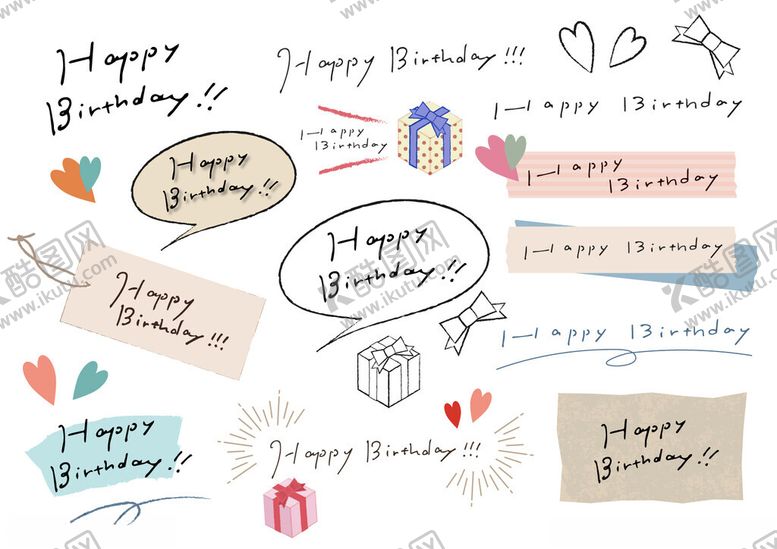 Happy
Birthday!!
Happy Birthday!!!
Happy Birthday
Happy
Birthday
Happy
Birthday!!
Happy
Birthday
Happy
Birthday!!
Happy Birthday
Happy
Birthday!!!
Happy Birthday
Happy
Birthday!!
Happy Birthday!!!
Happy
Birthday!!
酷图网
www.ikutu.com